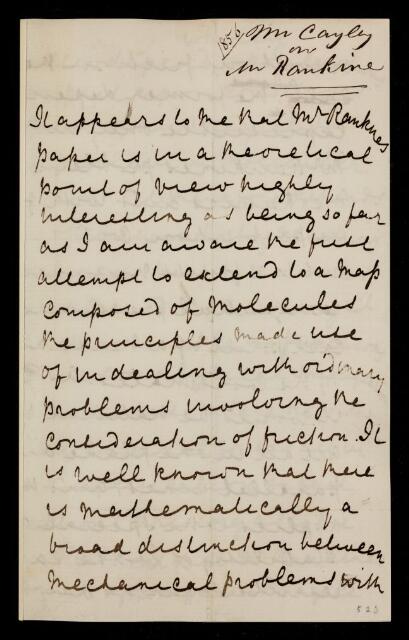 1856 Mr Cayley
on
Mr Rankine
It appears to me that Mr Rankines
paper is in a theoretical
point of view highly
interesting as being so far
as I am aware the first
attempt to extend to a mass
composed of molecules
the principles made use
of in dealing with ordinary
problems involving the
consideration of friction. It
is well known that there
is mathematically a
broad distinction between
mechanical problems with
523